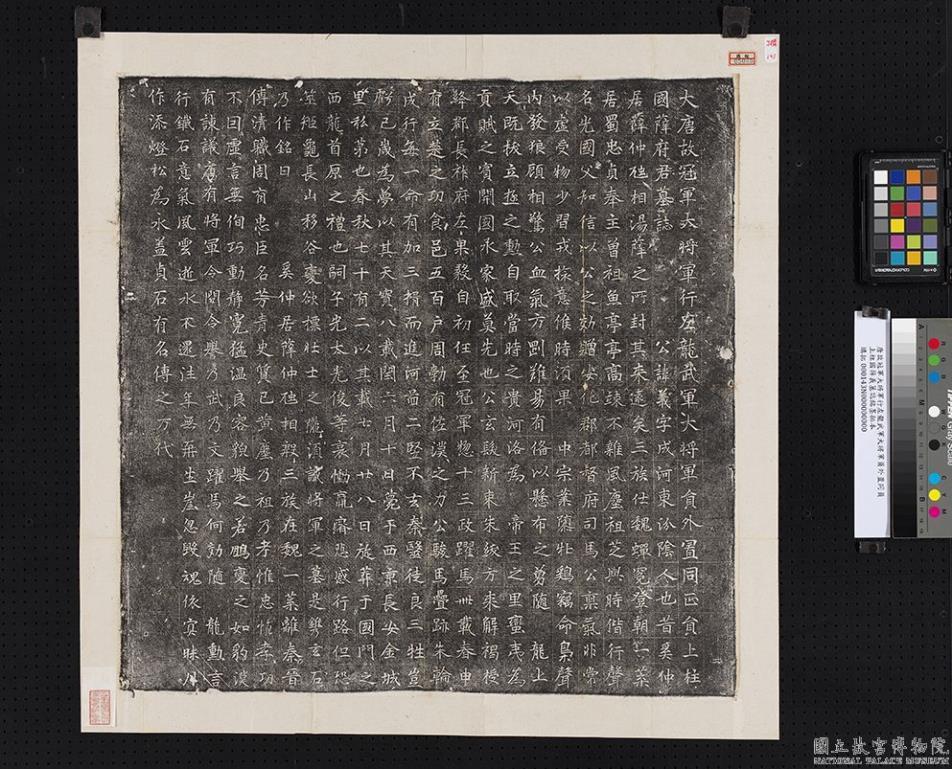 大唐故冠軍大將軍行左龍武軍大將軍員外置同正員上柱
國薛府君墓誌 公諱義字成河東汾陰人也昔奚仲
居薛仲虺相湯薛之所封其來遠矣三族仕魏蟬冕登朝一葉
居蜀忠貞奉主曾祖魚亭亭高竦不雜風塵祖芝與時偕行聲
名光國父知信以公之効贈安化郡都督府司馬公稟氣非常
以虛受物少習戎接意惟時須果 中宗業牝鷄竊命梟聲
內發狼顧相驚公血氣方剛雖易有俻以懸布之勇隨 龍上
天既扶立極之勳自取當時之貴河洛為 帝王之里蠻夷為
貢賦之賓開國承家盛莫先也公玄髮新來朱紱方來解褐授
絳郡長祚府左果毅自初任至冠軍惣十三政躍馬卅載春申
有立楚之功食邑五百戶周勃有佐漢之力公駿馬疊跡朱輪
成行每一命有加三揖而進河苗二竪不玄秦醫徒良三牲豈
虧已歲為夢以其天寶八載閏六月十日薨于西京長安金城
里私第也春秋七十有二以其載七月廿八日旋葬于國門之
西龍首原之禮也嗣子光太光俊等哀慟羸瘠悲感行路但恐
筮短龜長山移谷變欲摽壯士之隧須識將軍之墓是鐫玄石
乃作銘曰 奚仲居薛仲虺相殷三族在魏一葉離秦晉
傳清職周有忠臣名芳青史質已

塵乃祖乃考惟忠惟孝功
不回靈言無徇巧動靜寬猛溫良容貌舉之若鵬變之如豹漢
有諫議唐有將軍今聞令舉乃武乃文躍馬何効隨 龍勳言
行鐵石意氣風雲逝水不還注年無丘崖忽毀魂依冥昧月
作添燈松為永蓋貞石有名傳之代
唐故冠軍大將軍行左龍武軍大將軍員外置同正員
上柱國薛義墓誌銘墨拓本
國立故宮博物院
NATIONAL PALACE MUSEUM